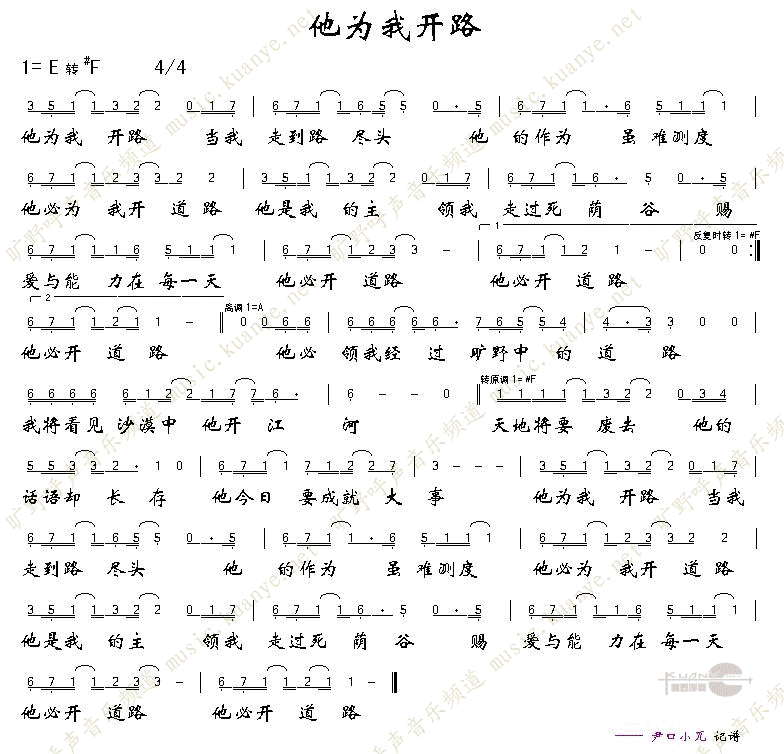 他为我开路
1= E 转 #F 4/4
3 5 1 1 3 2 2 0 1 7 | 6 7 1 1 6 5 5 0 · 5 | 6 7 1 1 · 6 5 1 1 1 |
他为我 开路 当我 走到路 尽头 他 的作为 虽 难测度
6 7 1 1 2 3 3 2 2 | 3 5 1 1 3 2 2 0 1 7 | 6 7 1 1 6 · 5 0 · 5 |
他必为 我开 道路 他是我 的主 领我 走过死 荫 谷 赐
1 反复时转 1= #F
6 7 1 1 1 6 5 1 1 1 | 6 7 1 1 2 3 3 - | 6 7 1 1 2 1 - | 0 0 :|
爱与能 力在 每一天 他必开 道路 他必开 道路
2 高调 1=A
6 7 1 1 2 1 1 - || 0 0 6 6 | 6 6 6 6 · 6 7 6 5 5 4 | 4 · 3 3 0 0 |
他必开 道路 他必 领我经 过 旷野中 的 道 路
转原调 1= #F
6 6 6 6 6 1 2 2 1 7 7 6 · | 6 - - 0 || 1 1 1 1 1 3 2 2 0 3 4 |
我将看见 沙漠中 他开 江 河 天地将要 废去 他的
5 5 3 3 2 · 1 0 | 6 7 1 1 7 1 2 2 7 | 3 - - - | 3 5 1 1 3 2 2 0 1 7 |
话语却 长 存 他今日 要成就 大 事 他为我 开路 当我
6 7 1 1 6 5 5 0 · 5 | 6 7 1 1 · 6 5 1 1 1 | 6 7 1 1 2 3 3 2 2 |
走到路 尽头 他 的作为 虽 难测度 他必为 我开 道路
3 5 1 1 3 2 2 0 1 7 | 6 7 1 1 6 · 5 0 · 5 | 6 7 1 1 1 6 5 1 1 1 |
他是我 的主 领我 走过死 荫 谷 赐 爱与能 力在 每一天
6 7 1 1 2 3 3 - | 6 7 1 1 2 1 1 - ||
他必开 道路 他必开 道路
—— 尹口小兀 记谱
旷野呼声音乐频道 music.kuanye.net